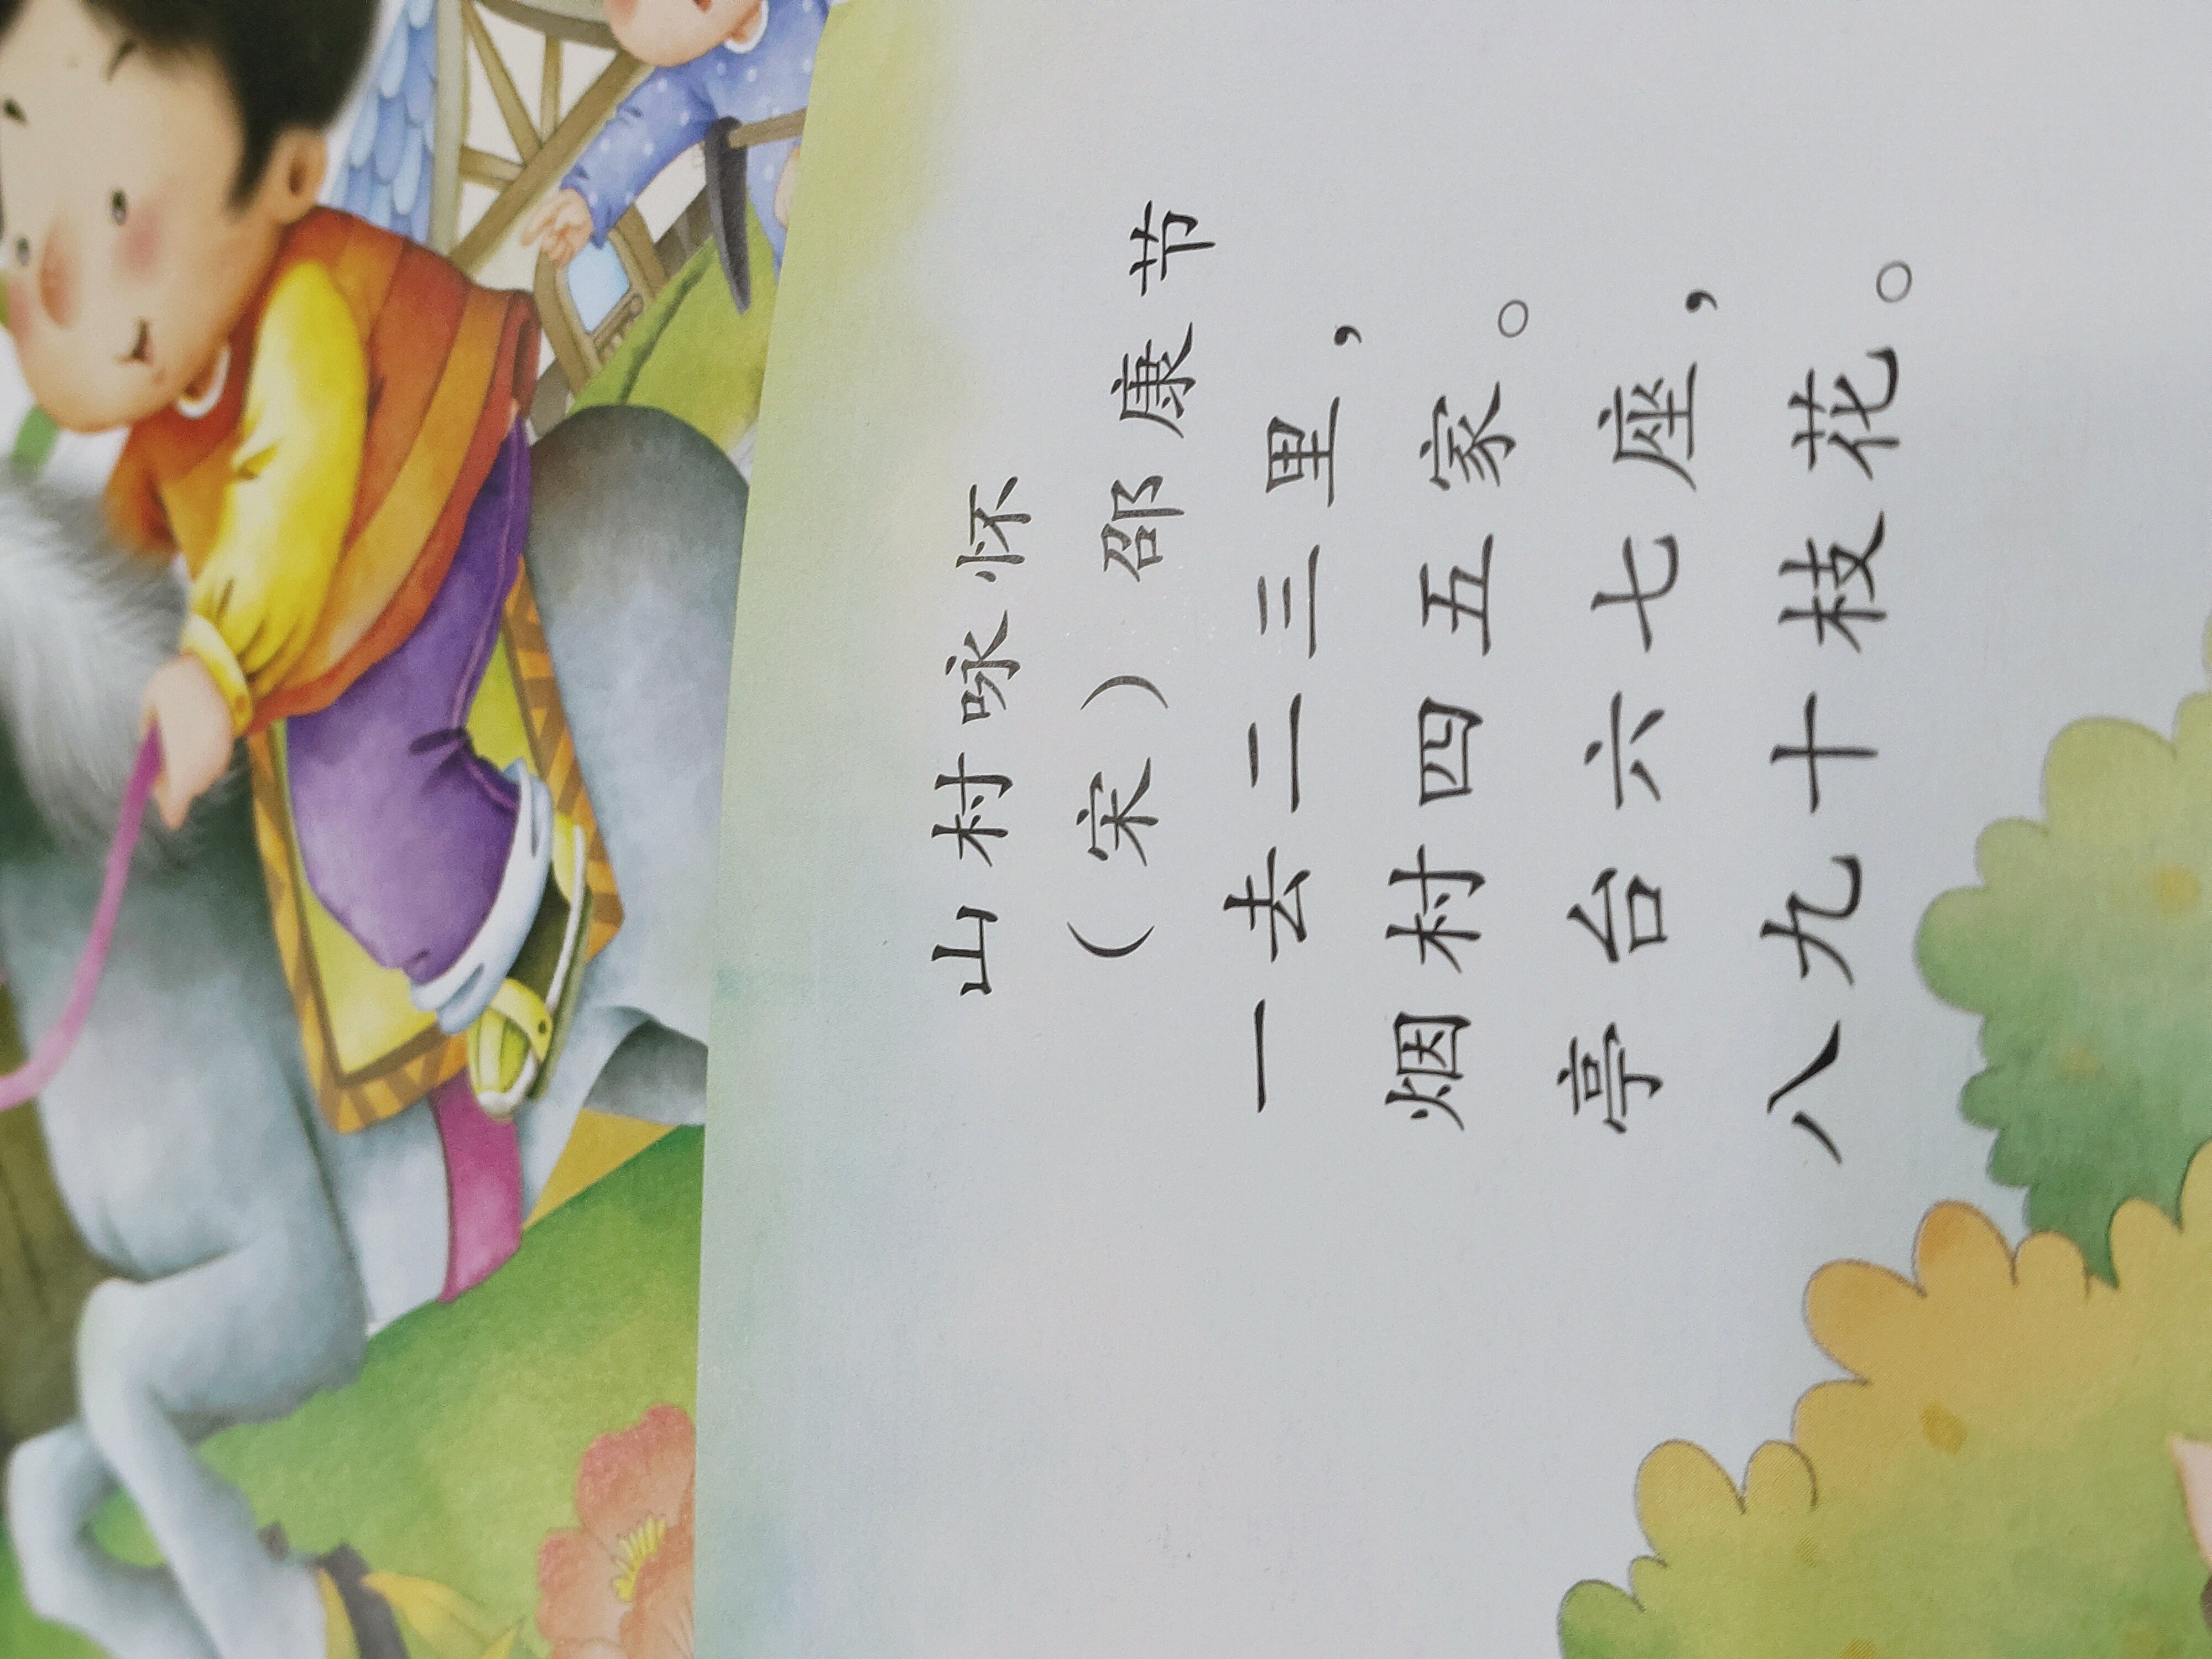 山村咏怀
（宋）邵康节
一去二三里，
烟村四五家。
亭台六七座，
八九十枝花。